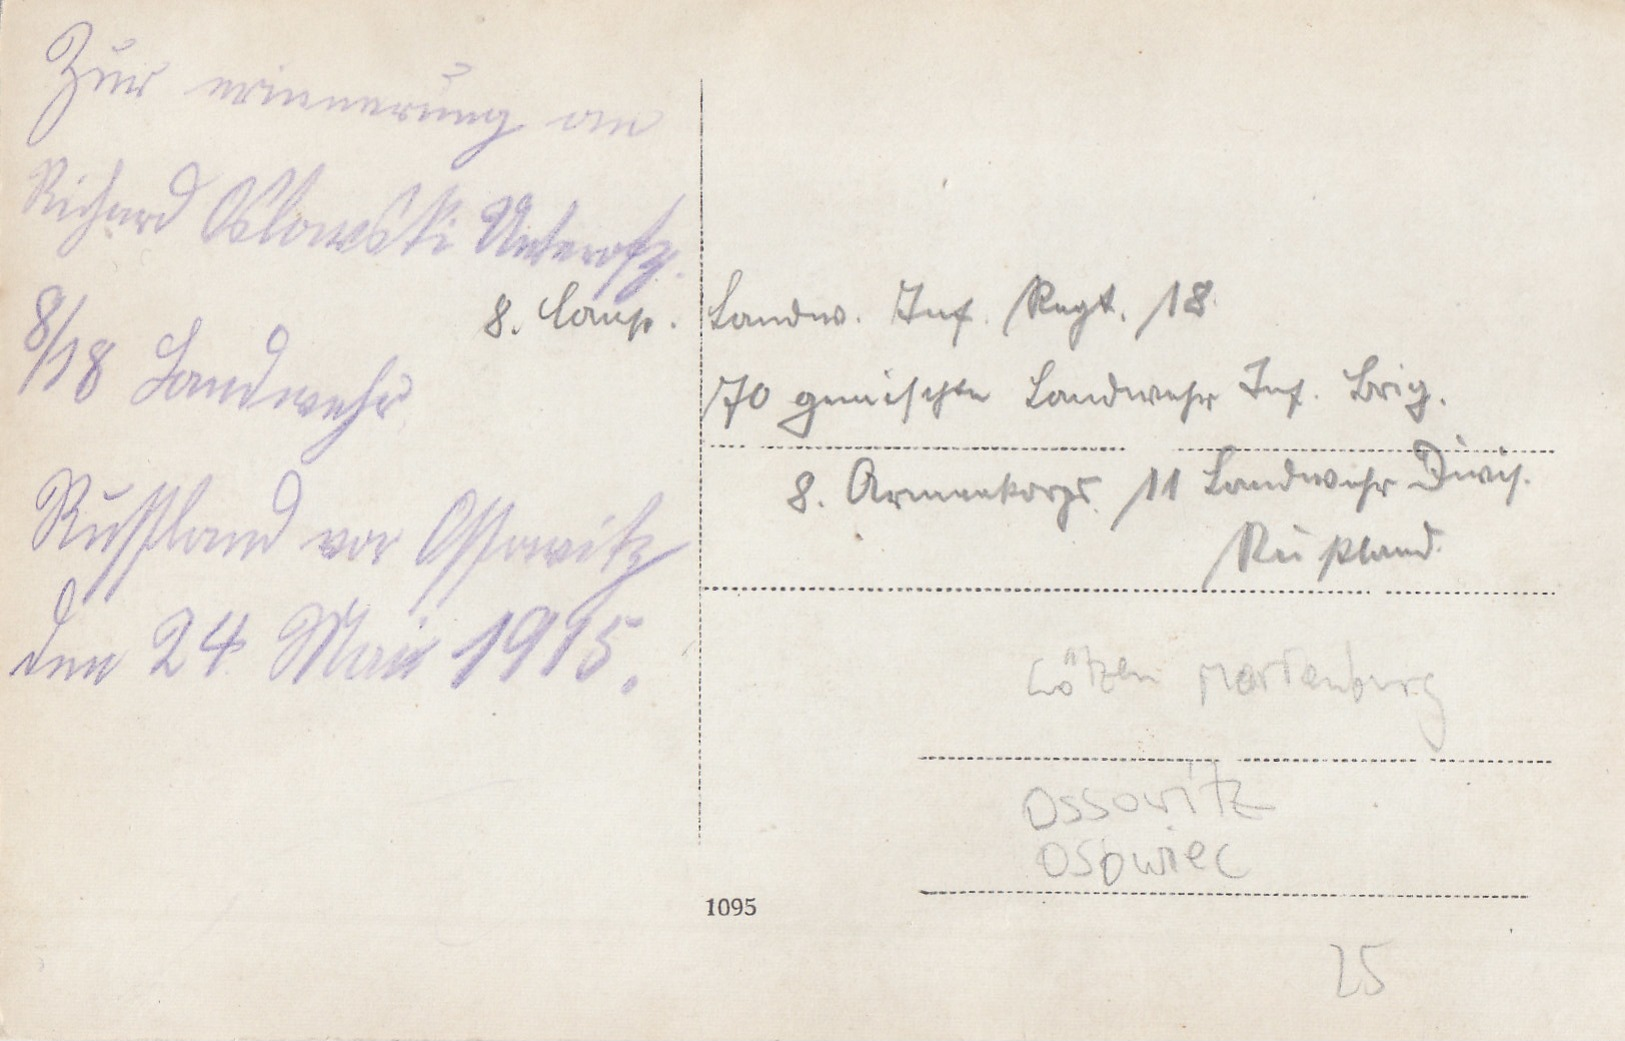 Zur erinnerung an
Richard Oslowski Unterofz.
8/18 Landwehr
Russland vor Ossowitz
den 24 Mai 1915.
8. Comp. Landw. Inf. Regt. 18.
70 gemischte Landwehr Inf. Brig.
8. Armeekorps. 11 Landwehr Divis.
Rußland.
Lötzen Marienburg
Ossowitz
Osowiec
1095
25